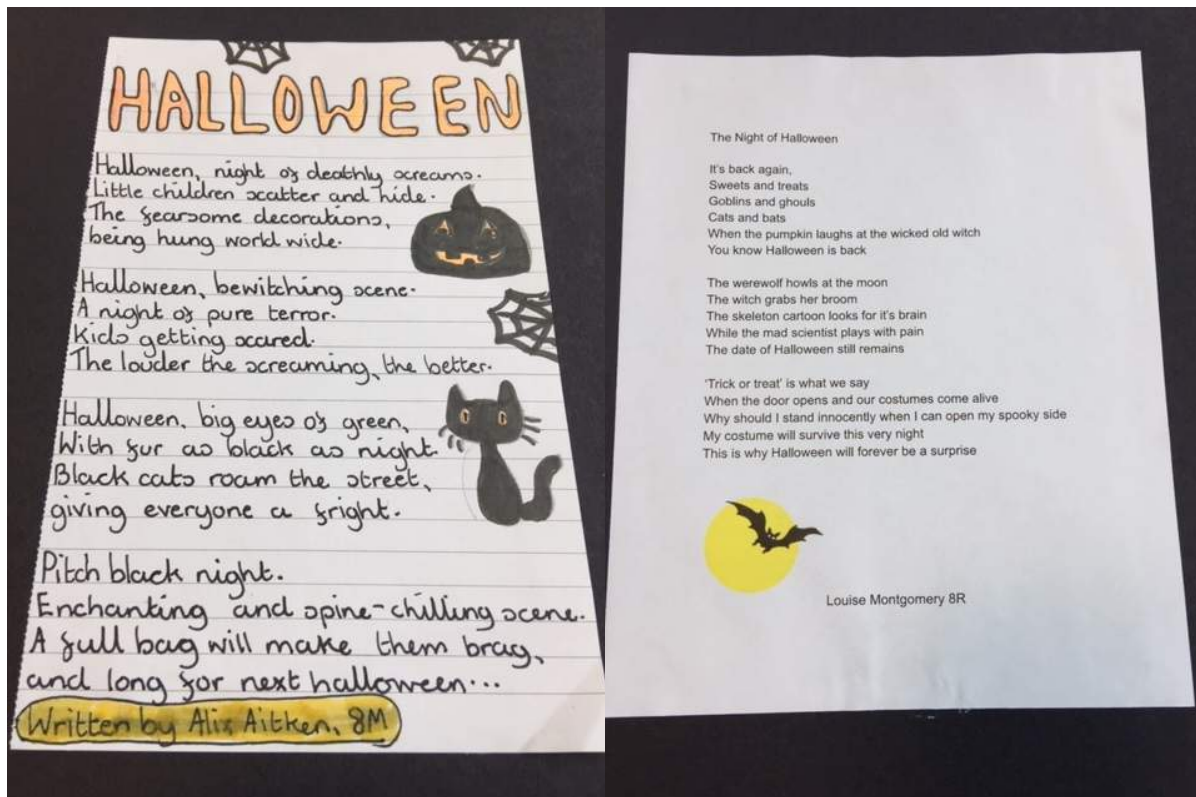 HALLOWEEN
Halloween, night of deathly screams.
Little children scatter and hide.
The fearsome decorations,
being hung world wide.
Halloween, bewitching scene.
A night of pure terror.
Kids getting scared.
The louder the screaming, the better.
Halloween, big eyes of green,
With fur as black as night.
Black cats roam the street,
giving everyone a fright.
Pitch black night.
Enchanting and spine-chilling scene.
A full bag will make them brag,
and long for next halloween...
Written by Alix Aitken, 8M
The Night of Halloween
It's back again,
Sweets and treats
Goblins and ghouls
Cats and bats
When the pumpkin laughs at the wicked old witch
You know Halloween is back
The werewolf howls at the moon
The witch grabs her broom
The skeleton cartoon looks for it's brain
While the mad scientist plays with pain
The date of Halloween still remains
'Trick or treat' is what we say
When the door opens and our costumes come alive
Why should I stand innocently when I can open my spooky side
My costume will survive this very night
This is why Halloween will forever be a surprise
Louise Montgomery 8R